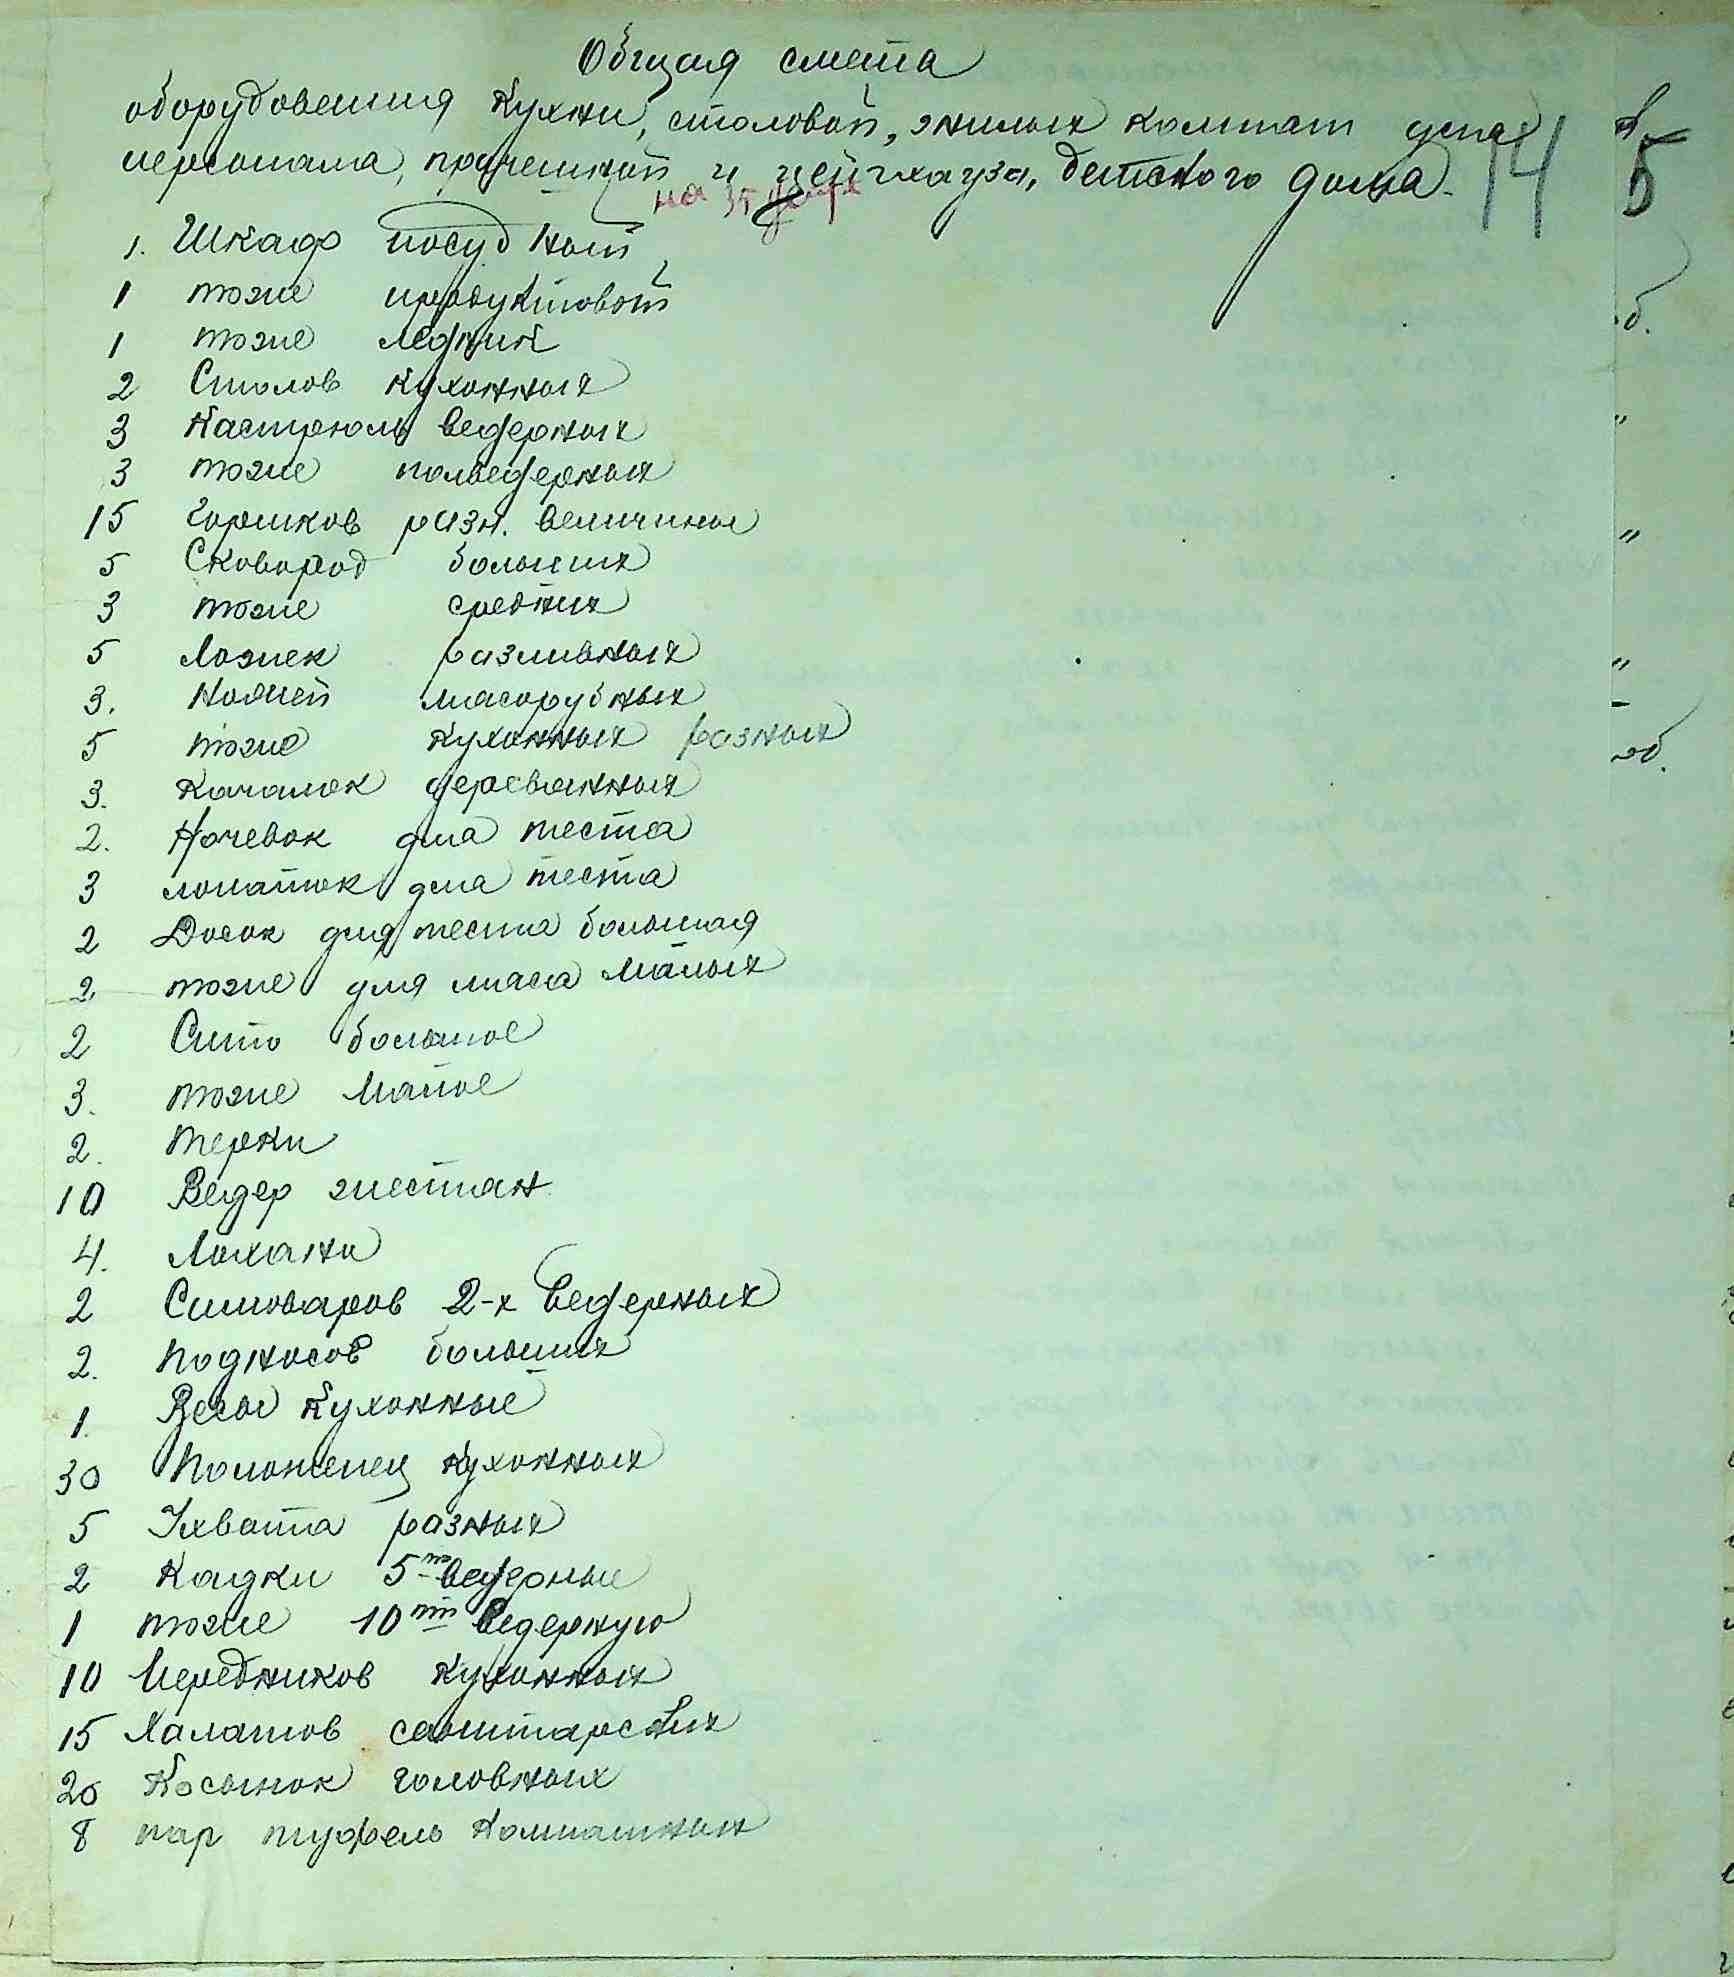 Общая смета
оборудования Кухни, столовой, жилых комнат для
персонала, прачешной и цейхгауза, детского дома.
на
14
5
1. Шкаф посудный
1 тоже продуктовой
1 тоже ледник
2 Столов кухонных
3 Кастрюль ведерных
3 тоже полведерных
15 Горшков разн. величины
5 Сковород больших
3 тоже средних
5 Ложек разливных
3. Ножей мясорубных
5 тоже кухонных разных
3. Качалок деревянных
2. Ночевок для теста
3 лопаток для теста
2 Досок для теста большая
2 тоже для мяса малых
2 Сито большое
3. тоже малое
2. Терки
10 Ведер жестян
4. Лохани
2 Самоваров 2-х ведерных
2. Подносов больших
1. Весы Кухонные
30 Полотенец кухонных
5 Ухвата разных
2 Кадки 5-ти ведерные
1 тоже 10ти ведерную
10 Передников кухонных
15 Халатов санитарских
20 Косынок головных
8 пар туфель Комнатных